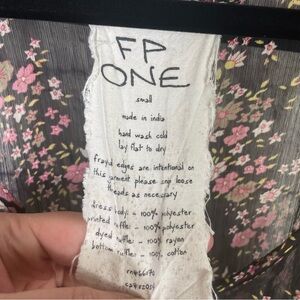 FP
ONE
small
made in india
hand wash cold
lay flat to dry
frayed edges are intentional on
this garment please snip loose
threads as necessary
dress body - 100% polyester
printed ruffle - 100% polyester
dyed ruffle - 100% rayon
bottom ruffle - 100% cotton